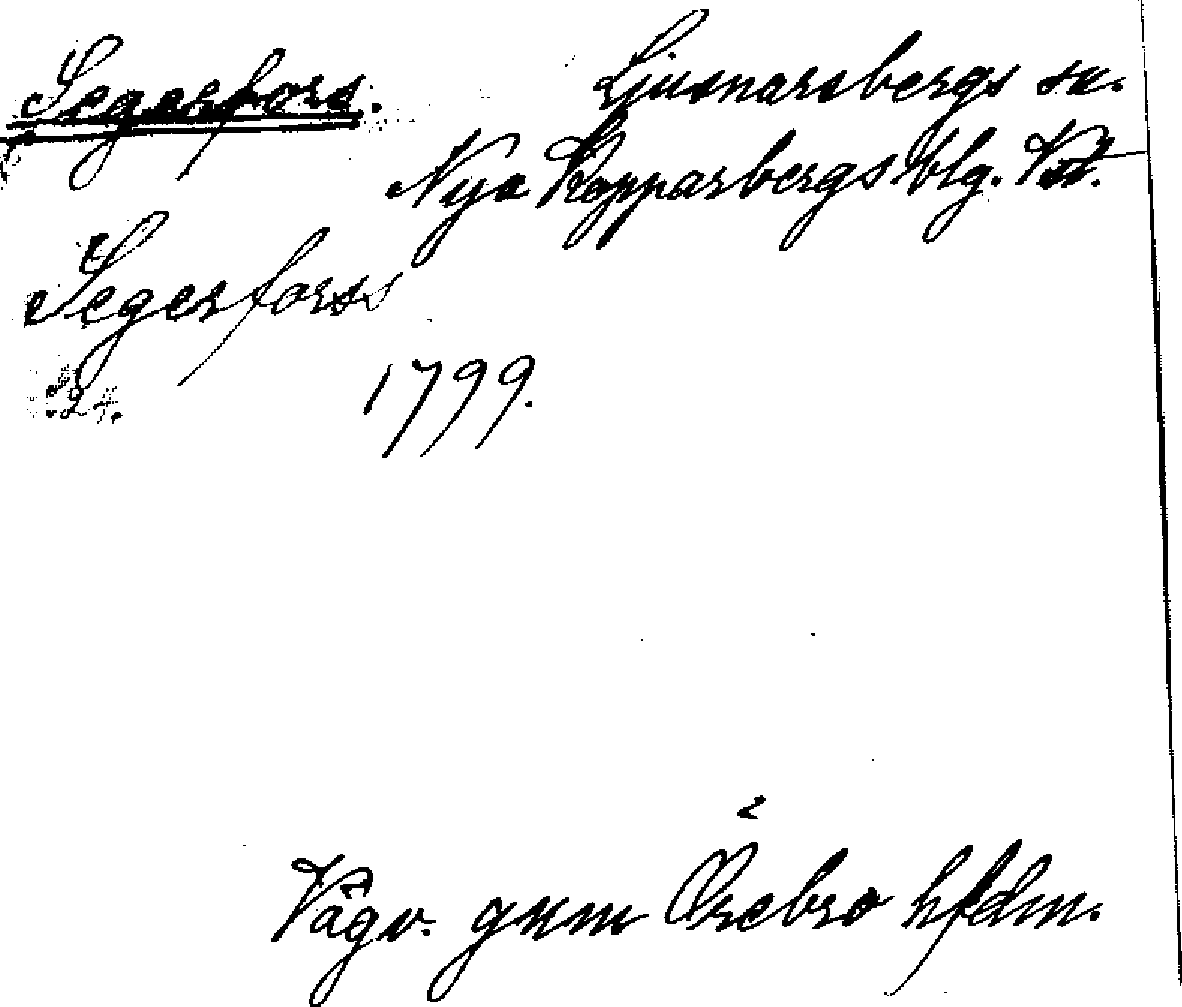 Segersfors. Ljusnarsbergs sn.
Nya Kopparbergs blg. Vstl.
Segersforss
s. 24. 1799.
Vägv. gnm Örebro hfdm.